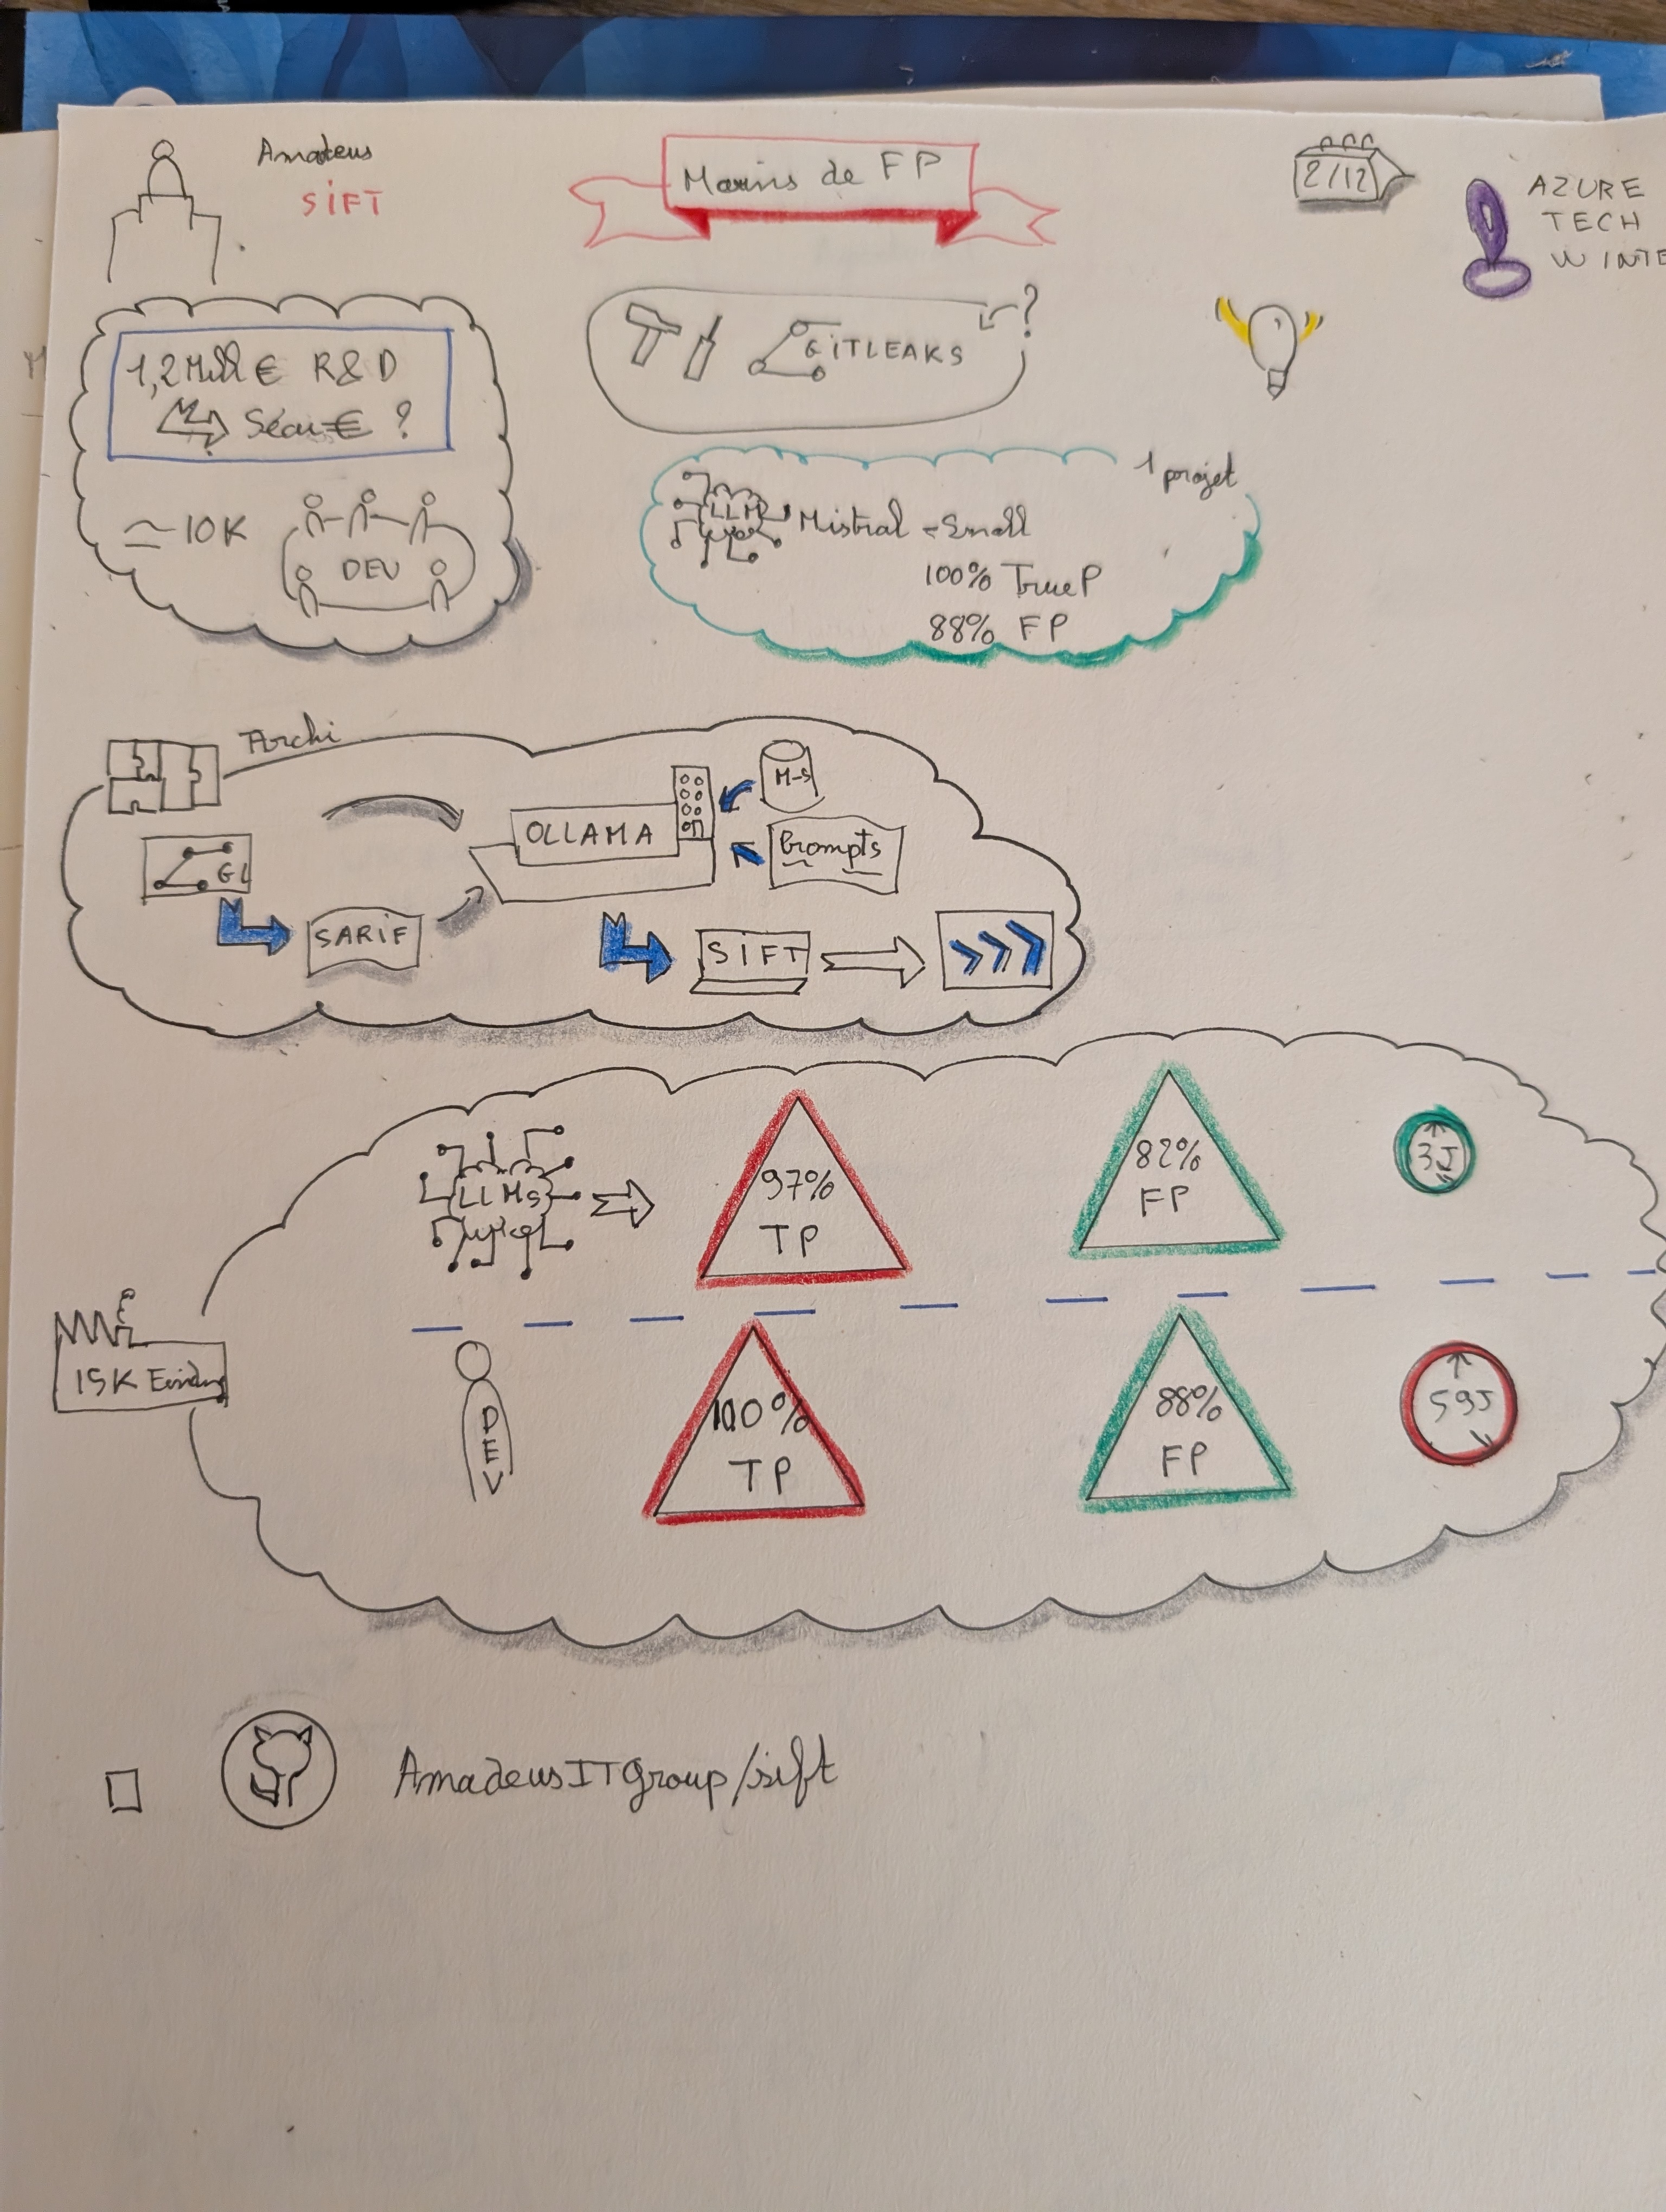 Amadeus
SiFT
Moins de FP
2/12
AZURE
TECH
WINTE
1,2 Mill € R&D
Sécu € ?
≃ 10K
DEV
?
GITLEAKS
1 projet
LLM
Mistral - Small
100% True P
88% FP
Archi
GL
SARiF
OLLAMA
M-S
Prompts
SiFT
LLMs
97%
TP
82%
FP
3J
15K
DEV
100%
TP
88%
FP
59J
AmadeusITGroup/sift